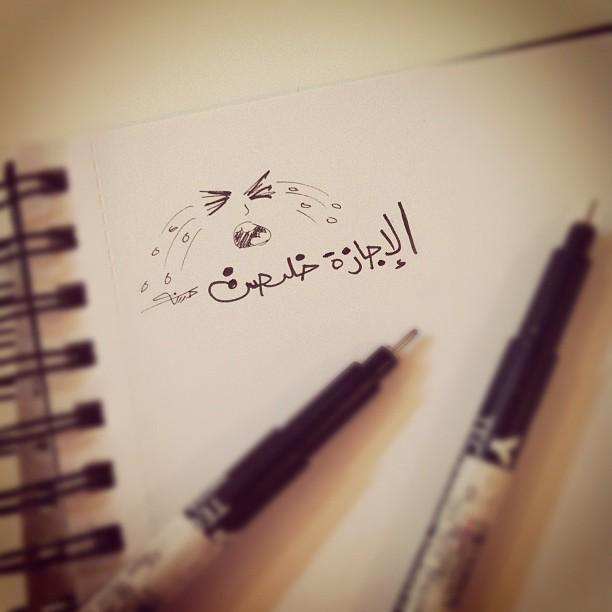 الإجازة خلصت